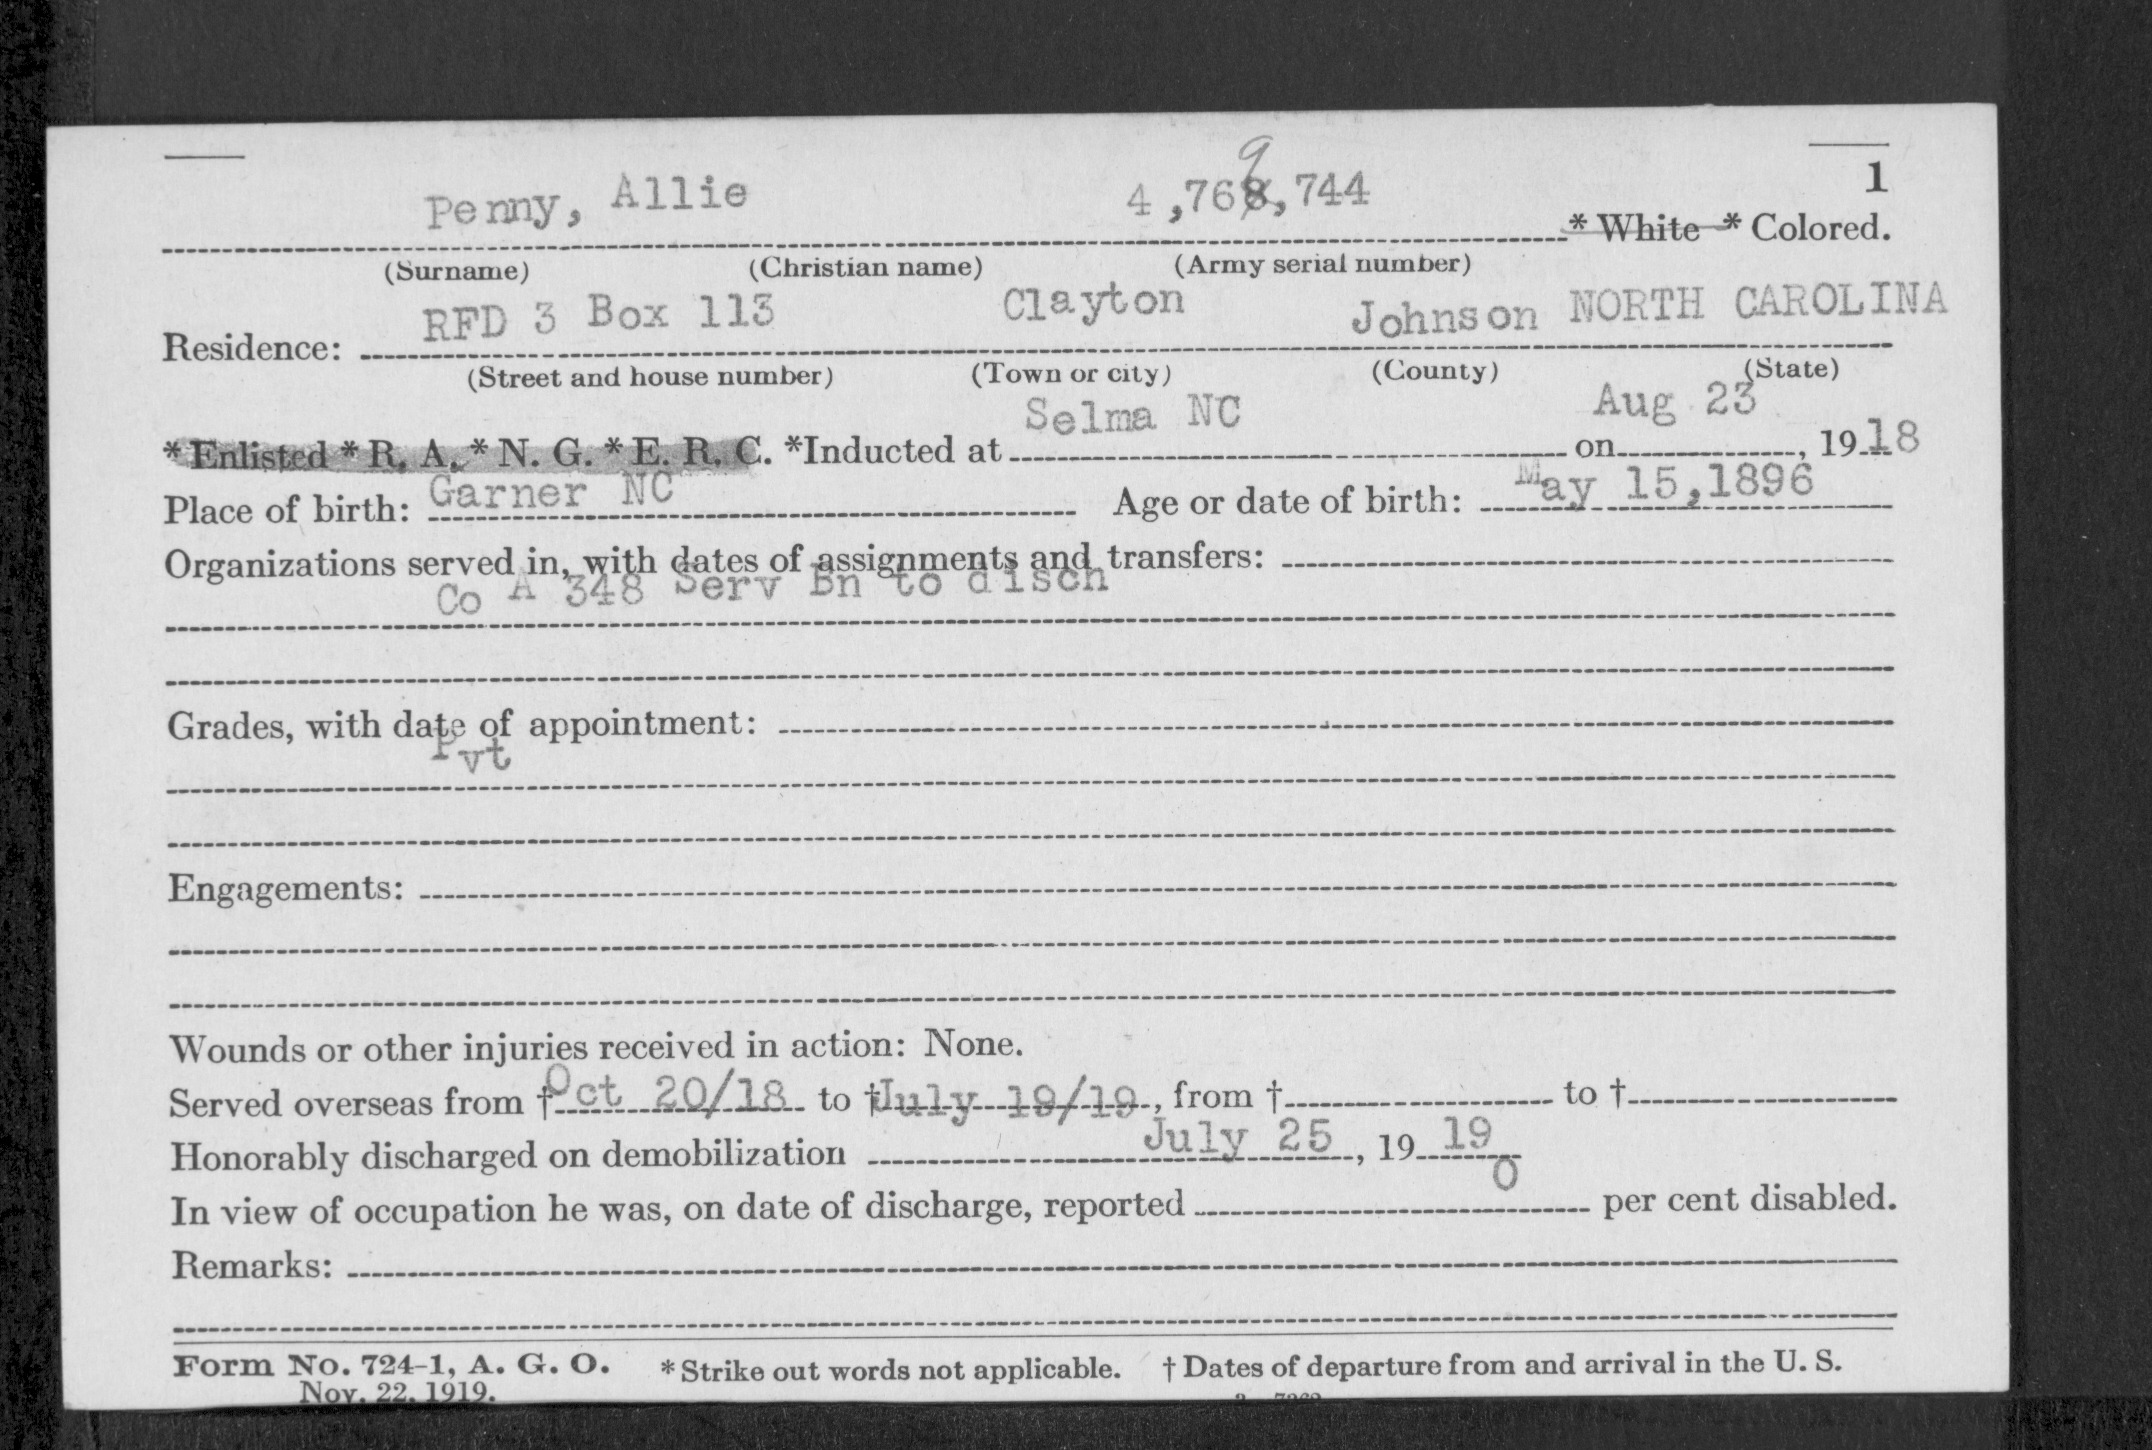 1
Penny, Allie 4,768,744 9 * White * Colored.
(Surname) (Christian name) (Army serial number)
RFD 3 Box 113 Clayton Johnson NORTH CAROLINA
Residence:
(Street and house number) (Town or city) (County) (State)
Selma NC Aug 23
* Enlisted * R. A. * N. G. * E. R. C. *Inducted at on , 19 18
Place of birth: Garner NC Age or date of birth: May 15,1896
Organizations served in, with dates of assignments and transfers:
Co A 348 Serv Bn to disch
Grades, with date of appointment:
Pvt
Engagements:
Wounds or other injuries received in action: None.
Served overseas from † Oct 20/18 to † July 19/19, from † to †
Honorably discharged on demobilization July 25, 19 19
In view of occupation he was, on date of discharge, reported 0 per cent disabled.
Remarks:
Form No. 724-1, A. G. O. * Strike out words not applicable. † Dates of departure from and arrival in the U. S.
Nov. 22, 1919.